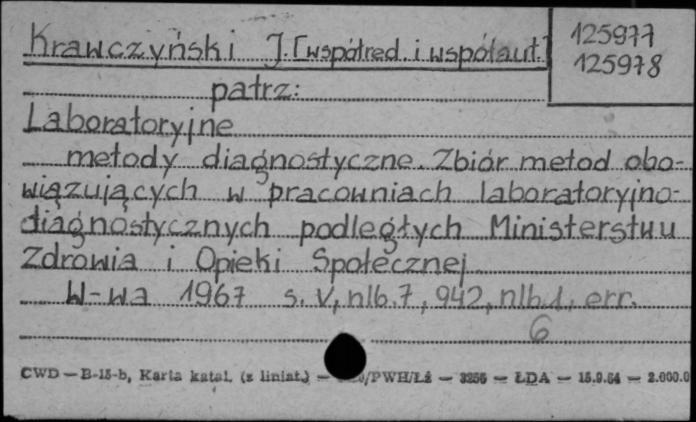 Krawczyński J. [współred. i współaut.]
125977
125978
patrz:
Laboratoryjne
metody diagnostyczne. Zbiór metod obo-
wiązujących w pracowniach laboratoryjno-
diagnostycznych podległych Ministerstwu
Zdrowia i Opieki Społecznej
W-wa 1967 s. V, nlb. 7, 942, nlb. 1, err.
6
CWD — B-15-b, Karta katal. (z liniat.) — /PWH/Łź — 3256 — ŁDA — 15.9.54 — 2.000.0